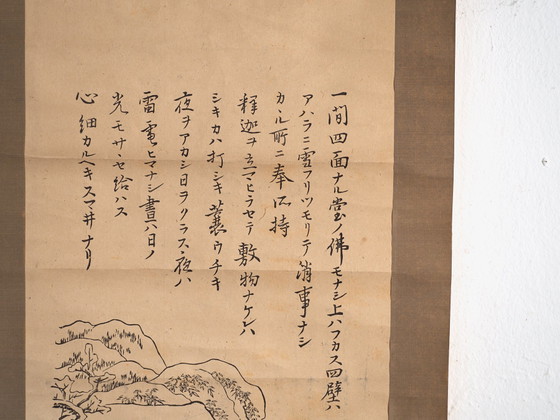 一間四面ナル堂ノ佛モナシ上ハフカス四壁ハ
アハラニ雪フリツモリテ消事ナシ
カヽル所ニ奉所持
釋迦ヲ立マヒラセテ敷物ナケレハ
シキカハ打シキ蓑ウチキ
夜ヲアカシ日ヲクラス夜ハ
雷電ヒマナシ晝ハ日ノ
光モサヽセ給ハス
心細カルヘキスマ井ナリ